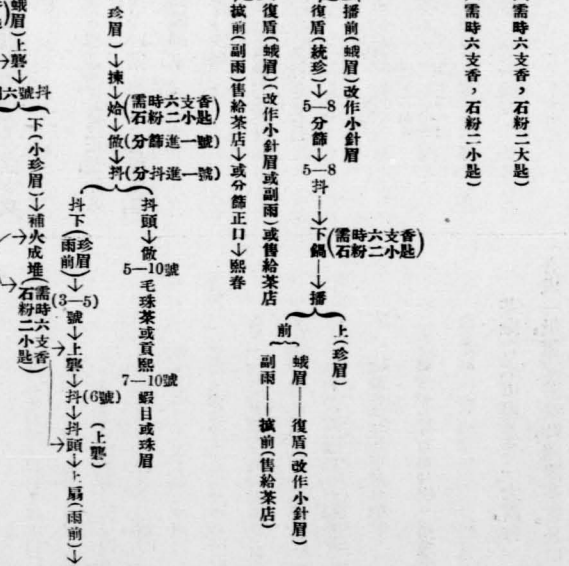 需時六支香，石粉二大匙)
需時六支香，石粉二小匙)
播前(蛾眉)改作小針眉
復眉(統珍)↓5—8分篩↓5—8抖—↓下鍋(需時六支香石粉二小匙)—↓播
上(珍眉)
前
蛾眉——復眉(改作小針眉)
副雨——㨨前(售給茶店)
復眉(蛾眉)(改作小針眉或副雨)或售給茶店
前(副雨)售給茶店↓或分篩正口↓熙春
珍眉)↓揀↓烚(需時六支香石粉二匙)↓做(分篩進一號)↓抖(分抖進一號)
抖頭↓做5—10號毛珠茶或貢熙7—10號蝦目或珠眉
抖下(珍眉雨前)↓(3—5)號↓上聾↓抖(6號)↓抖頭↓上扇(雨前)↓
(上聾)
下(小珍眉)↓補火成堆(需時六支香石粉二小匙)
蛾眉)上聾↓
六號抖